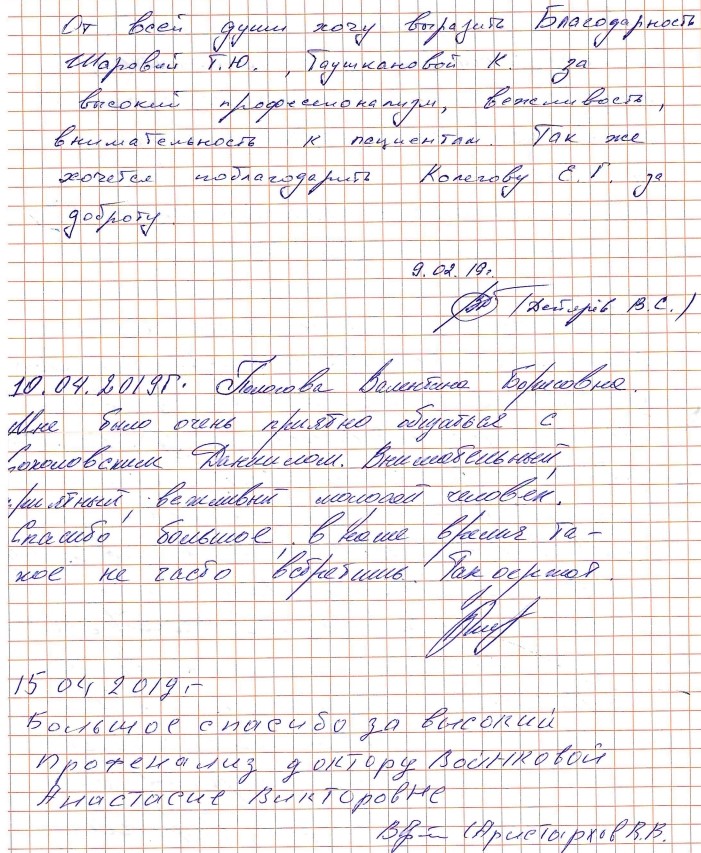 От всей души хочу выразить Благодарность
Шаровой Т.Ю., Таушкановой К. за
высокий профессионализм, вежливость,
внимательность к пациентам. Так же
хочется поблагодарить Колегову Е.Г. за
доброту.
9.02.19г.
(Дегтярёв В.С.)
10.04.2019г. Валентина Борисовна.
Мне было очень приятно общаться с
Соколовским Даниилом. Внимательный,
приятный, вежливый молодой человек.
Спасибо большое, в наше время та-
кое не часто встретишь. Так держать.
15 04 2019г
Большое спасибо за высокий
Профенализ доктору Воинковой
Анастасие Викторовне
(Аристархов В.В.